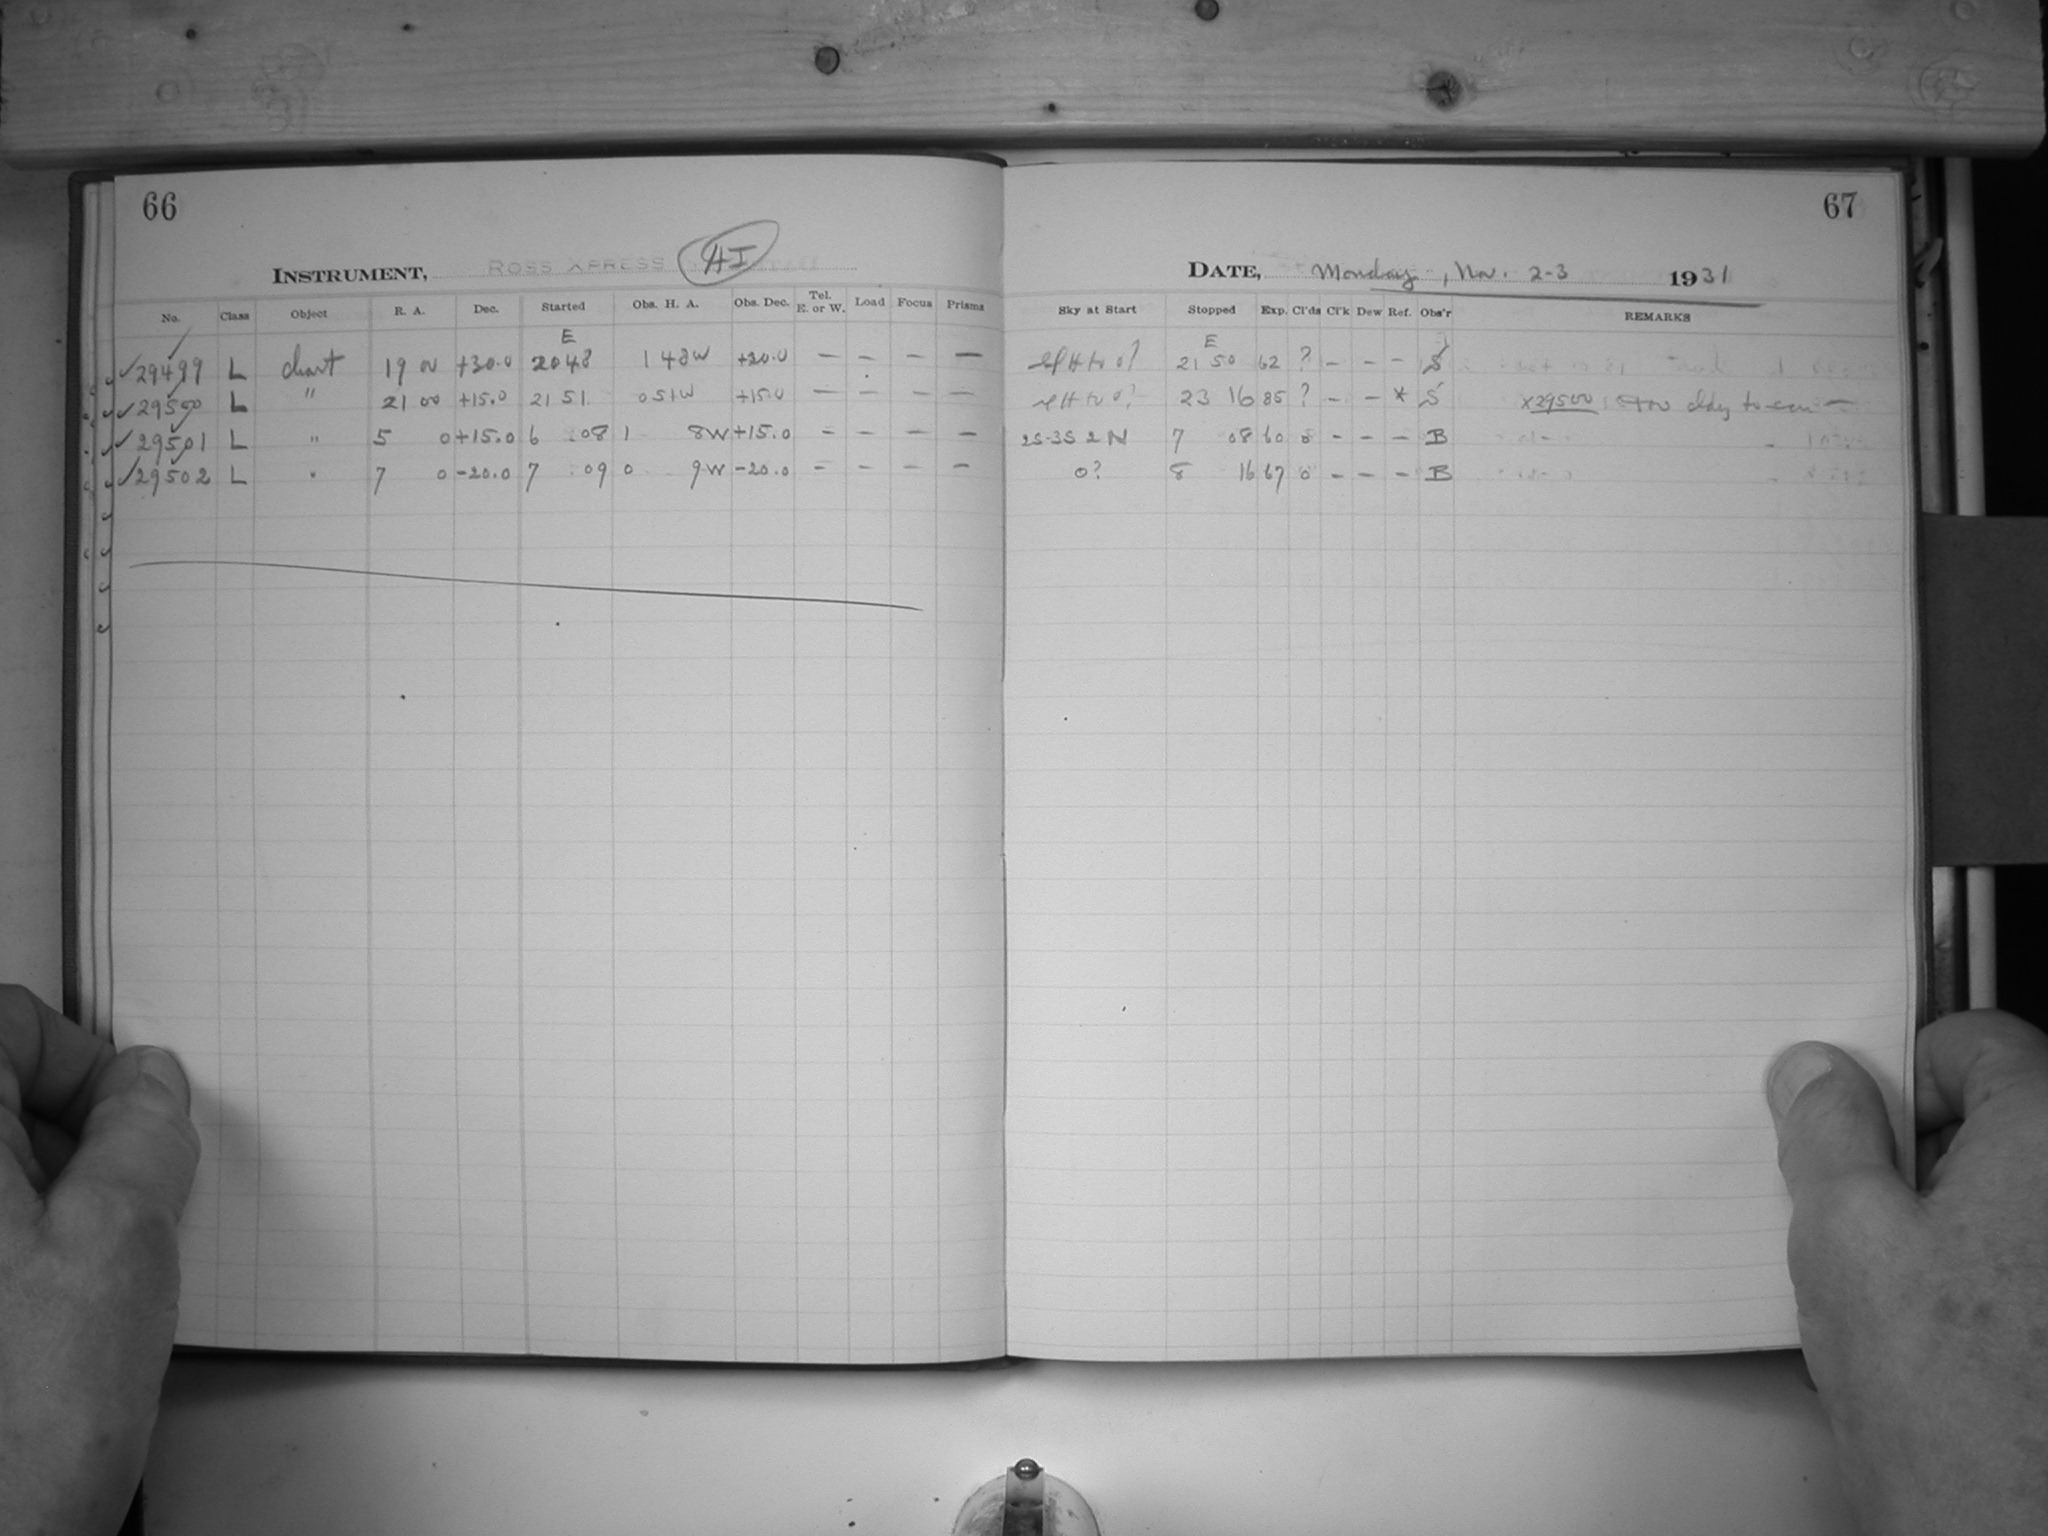 66
67
INSTRUMENT, ROSS XPRESS HI
DATE, Monday, Nov. 2-3 1931
No. Class Object R. A. Dec. Started Obs. H. A. Obs. Dec. Tel. E. or W. Load Focus Prisms Sky at Start Stopped Exp. Cl'ds Cl'k Dew Ref. Obs'r REMARKS
E E
29499 L chart 19 00 +30.0 2048 1 48W +30.0 — — — — 21 50 62 ? — — — S
29500 L " 21 00 +15.0 21 51 0 51W +15.0 — — — — 23 16 85 ? — — * S X29500
29501 L " 5 0 +15.0 6 08 1 8W +15.0 — — — — 2S-3S 2 N 7 08 60 0 — — — B
29502 L " 7 0 -20.0 7 09 0 9W -20.0 — — — 0? 8 16 67 0 — — — B